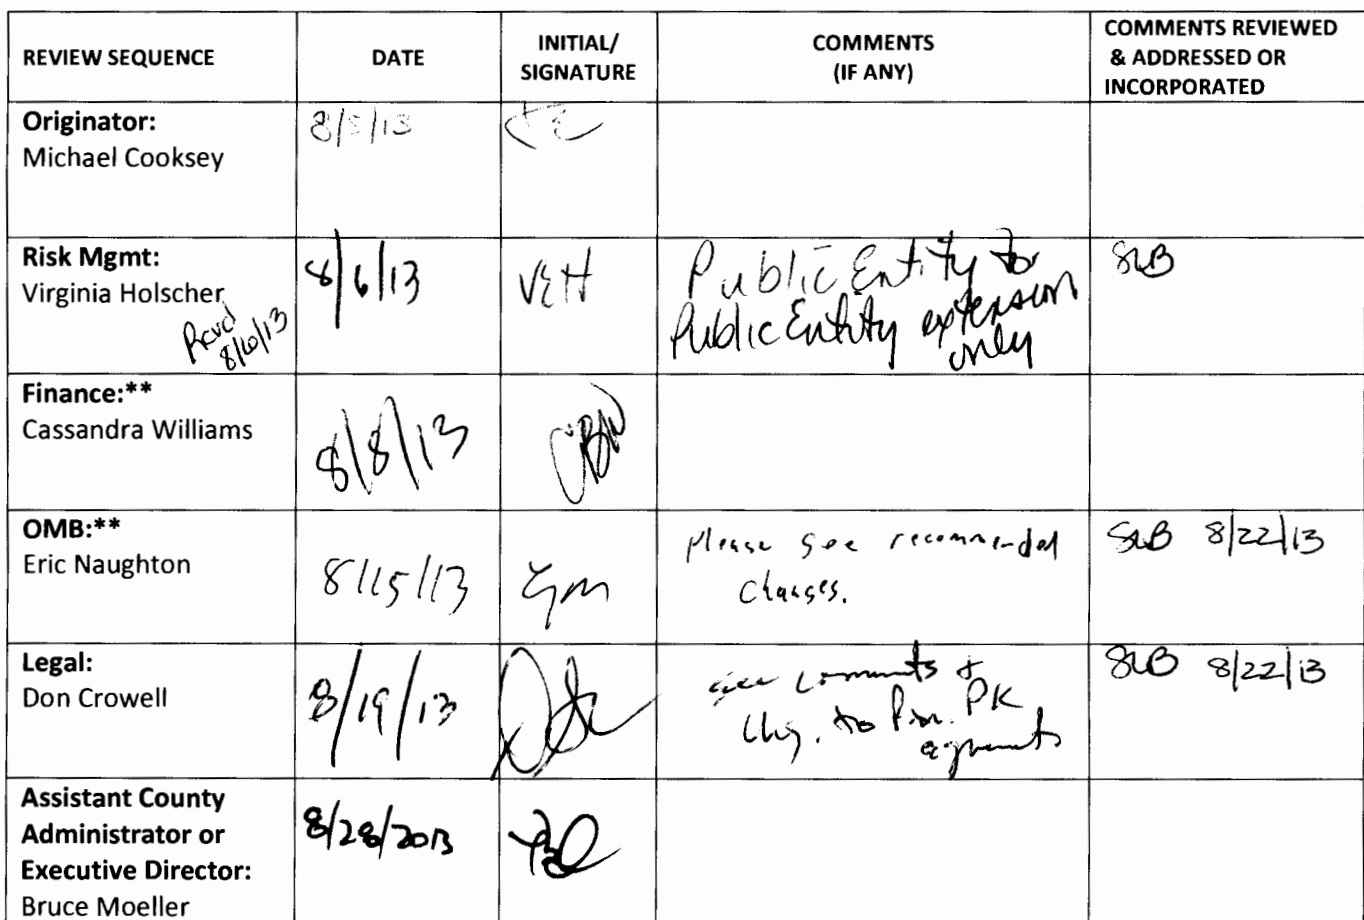 REVIEW SEQUENCE
DATE
INITIAL/
SIGNATURE
COMMENTS
(IF ANY)
COMMENTS REVIEWED
& ADDRESSED OR
INCORPORATED
Originator:
Michael Cooksey
8/5/13
Risk Mgmt:
Virginia Holscher
Rcvd
8/6/13
8/6/13
VEH
Public Entity to
Public Entity extension
only
SLB
Finance:**
Cassandra Williams
8/8/13
CBW
OMB:**
Eric Naughton
8/15/13
please see recommended
changes.
SLB 8/22/13
Legal:
Don Crowell
8/19/13
see comments &
chg. to Pin. PK
agreements
SLB 8/22/13
Assistant County
Administrator or
Executive Director:
Bruce Moeller
8/28/2013